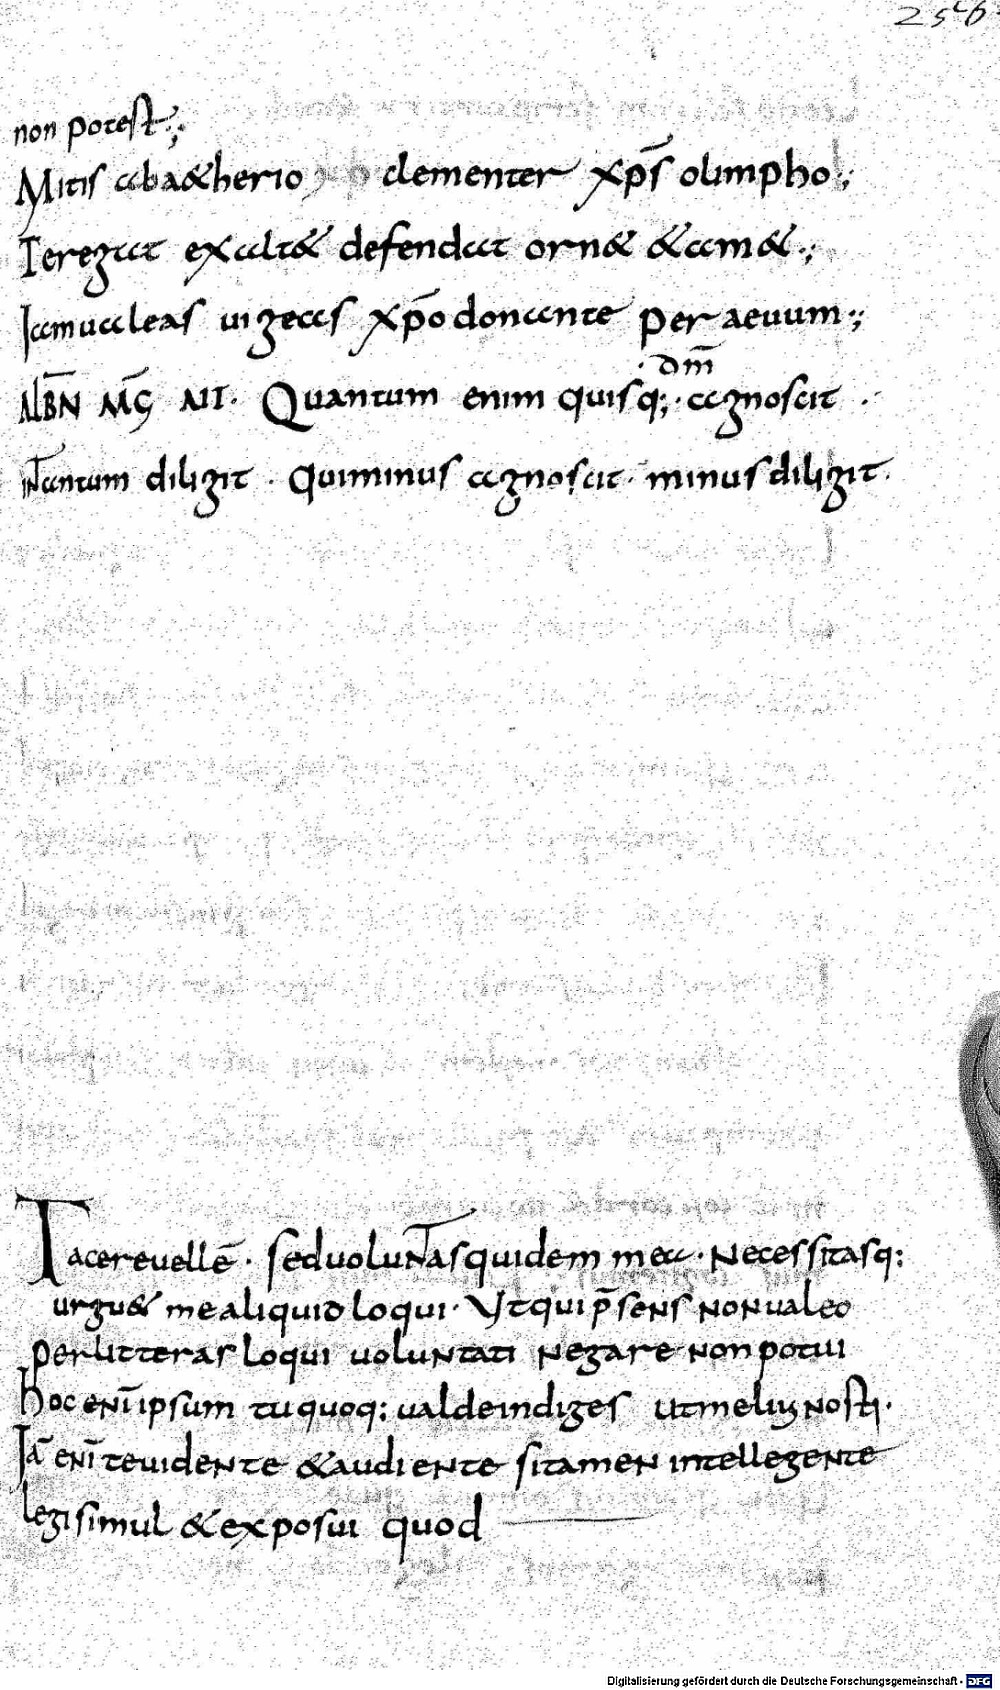 256
non potest.;
Mitis ab aetherio clementer xp̄s olimpho.;
Te regat exaltet defendat ornet & amet.;
Iam ualeas uigeas xp̄o donante per aeuum.;
ALBN̄ MḠ AIT. Quantum enim quisq; dm̄ agnoscit.
in tantum diligit. Qui minus agnoscit. minus diligit.
Tacere uellē. sed uoluntas quidem mea. Necessitasq;
urguet me aliquid loqui. Vt qui p̄sens non ualeo
per litteras loqui uoluntati negare non potui
Hoc enī ipsum tu quoq; ualde indiges ut melius nosti.
Iā enī te uidente & audiente sitamen intellegente
legi simul & exposui quod
Digitalisierung gefördert durch die Deutsche Forschungsgemeinschaft - DFG